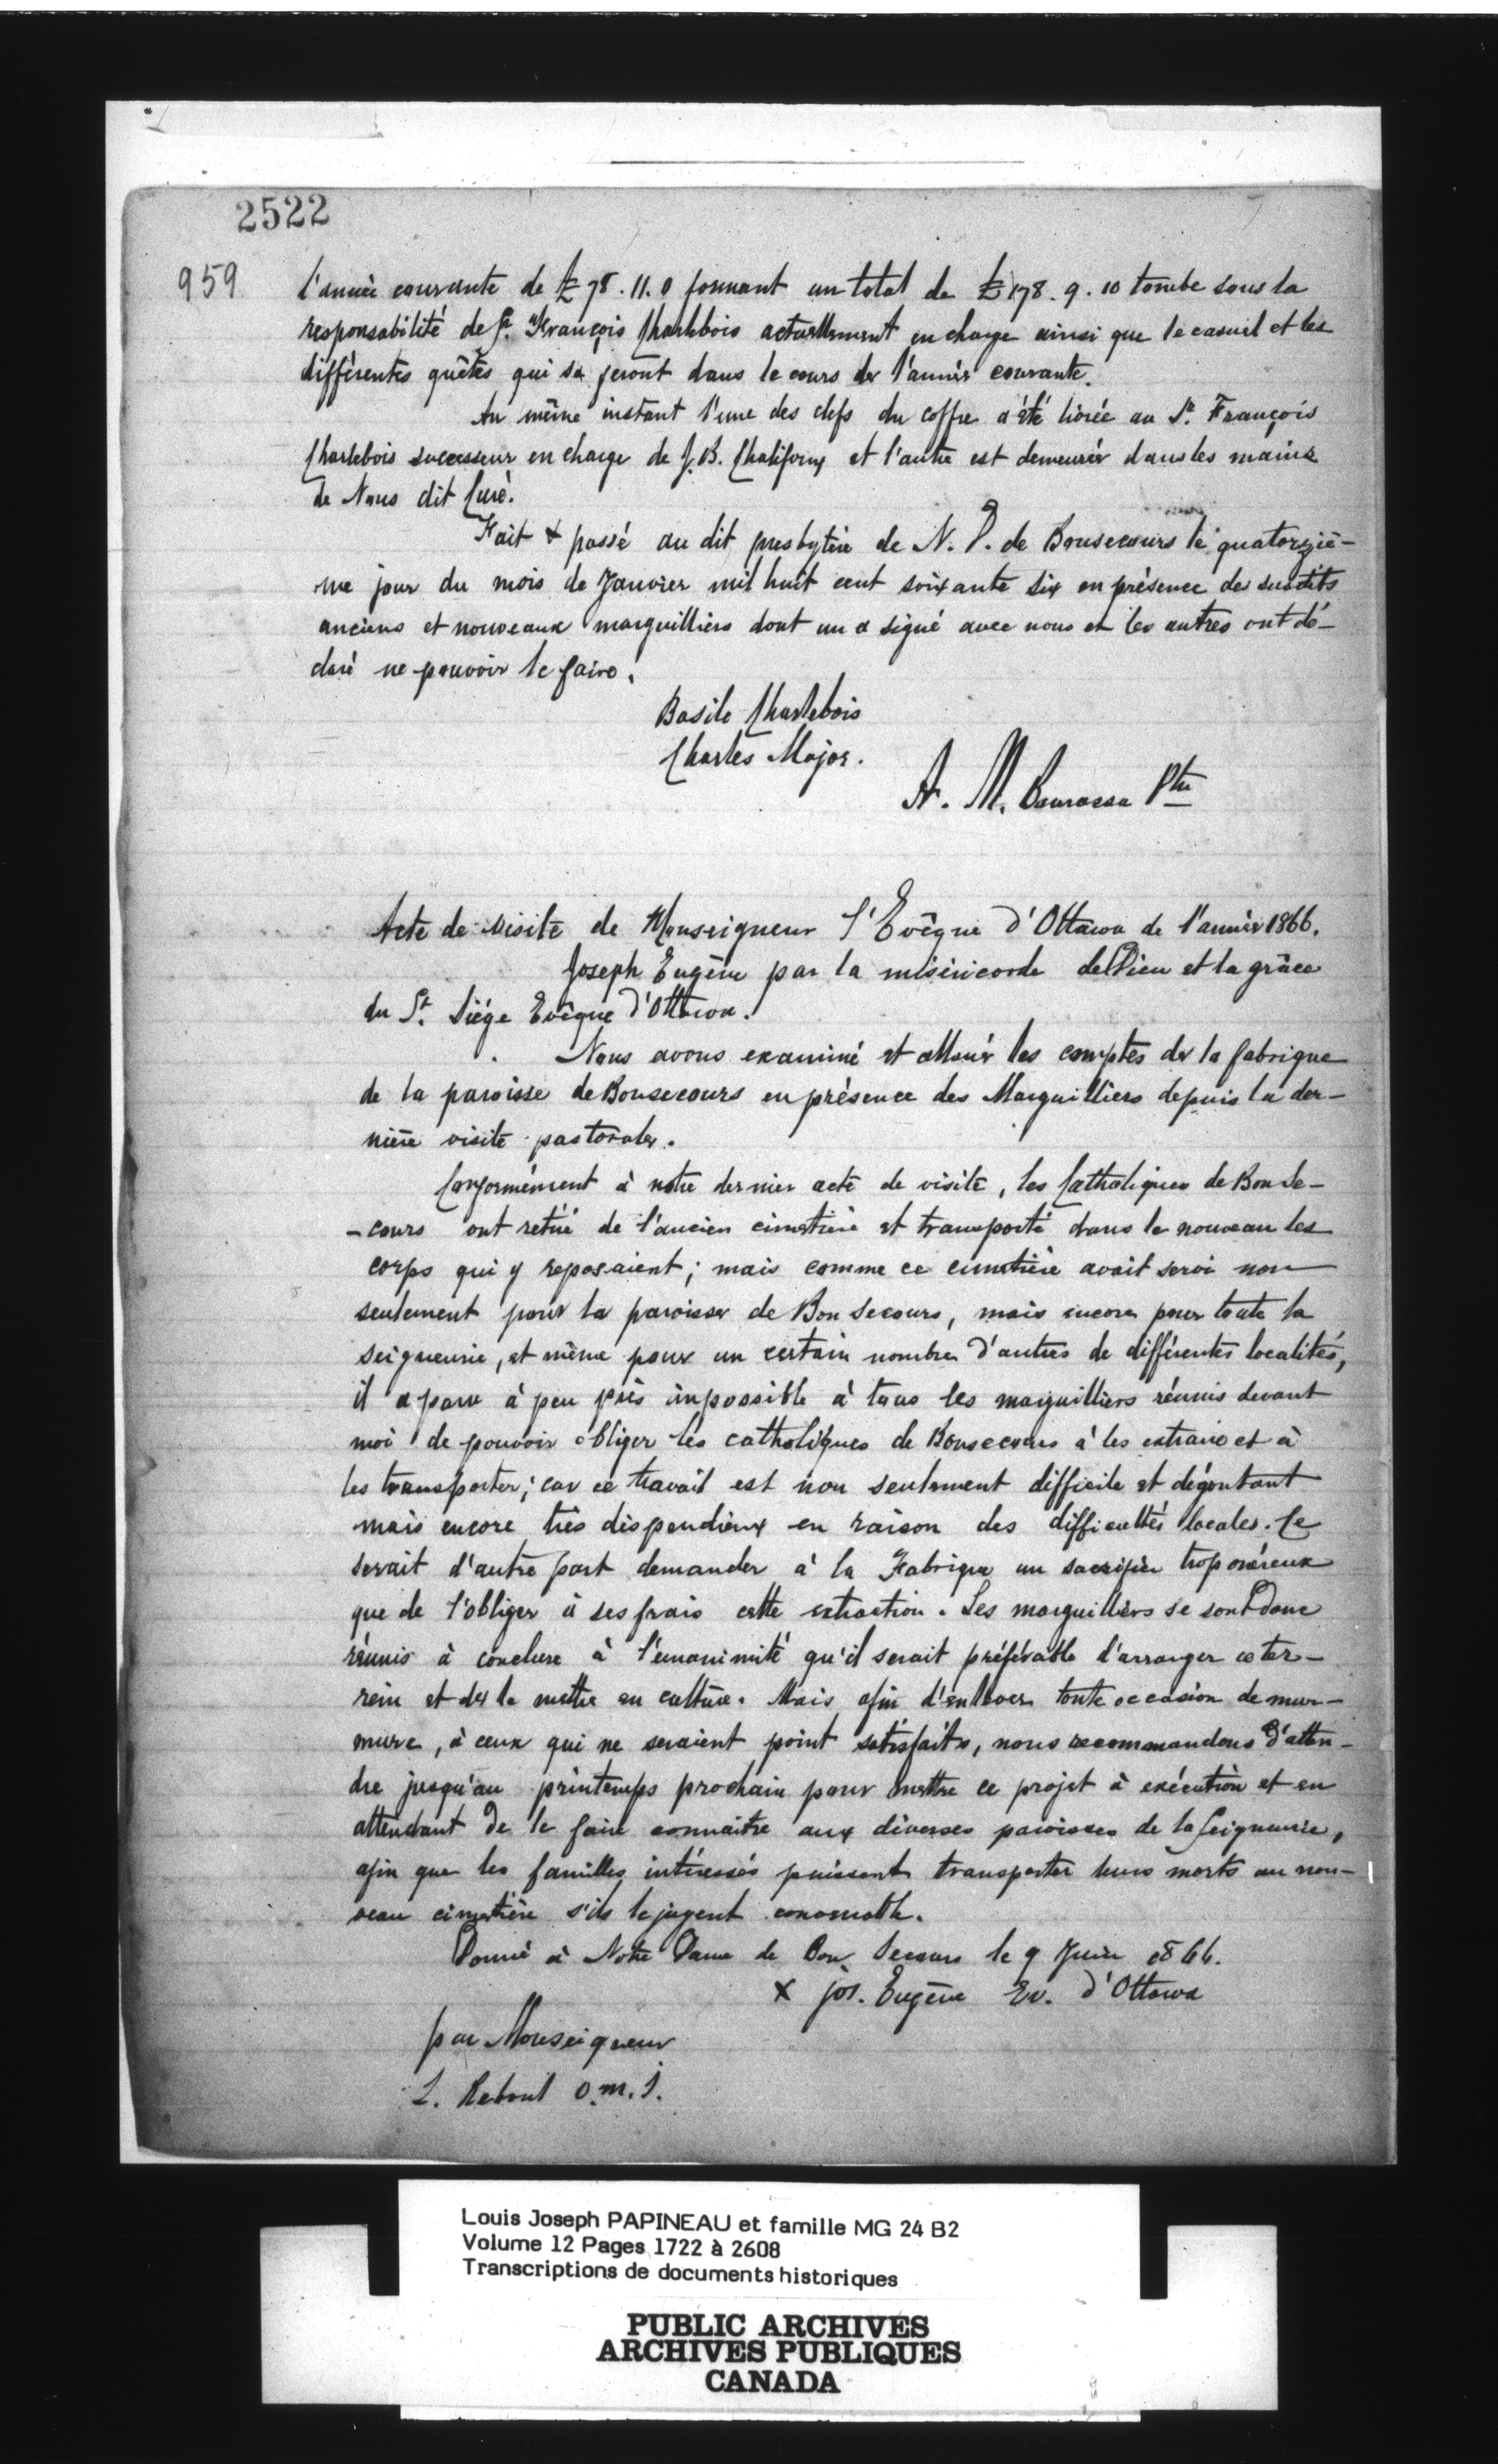 2522
959
l'année courante de £78.11.0 formant un total de £178.9.10 tombe sous la
responsabilité de Sr. François Charlebois actuellement en charge ainsi que le casuel et les
différentes quêtes qui se feront dans le cours de l'année courante.
Au même instant l'une des clefs du coffre a été livrée au Sr. François
Charlebois successeur en charge de J.B. Chalifoux et l'autre est demeurée dans les mains
de Nous dit Curé.
Fait & passé au dit presbytère de N. D. de Bonsecours le quatorziè-
me jour du mois de Janvier mil huit cent soixante six en présence des susdits
anciens et nouveaux marguilliers dont un a signé avec nous et les autres ont dé-
claré ne pouvoir le faire.
Basile Charlebois
Charles Major.
A. M. Bourassa Ptre
Acte de visite de Monseigneur l'Evêque d'Ottawa de l'année 1866.
Joseph Eugène par la miséricorde de Dieu et la grâce
du St. Siége Evêque d'Ottawa.
Nous avons examiné et alloué les comptes de la fabrique
de la paroisse de Bonsecours en présence des Marguilliers depuis la der-
nière visite pastorale.
Conformément à notre dernier acte de visite, les Catholiques de Bon Se-
-cours ont retiré de l'ancien cimetière et transporté dans le nouveau les
corps qui y reposaient; mais comme ce cimetière avait servi non
seulement pour la paroisse de Bon Secours, mais encore pour toute la
seigneurie, et même pour un certain nombre d'autres de différentes localités,
il a paru à peu près impossible à tous les marguilliers réunis devant
moi de pouvoir obliger les catholiques de Bonsecours à les extraire et à
les transporter; car ce travail est non seulement difficile et dégoutant
mais encore très dispendieux en raison des difficultés locales. Ce
serait d'autre part demander à la Fabrique un sacrifice trop onéreux
que de l'obliger à ses frais cette extraction. Les marguilliers se sont donc
réunis à conclure à l'émanimité qu'il serait préférable d'arranger ce ter-
rein et de le mettre en culture. Mais afin d'enlever toute occasion de mur-
mure, à ceux qui ne seraient point satisfaits, nous recommandons d'atten-
dre jusqu'au printemps prochain pour mettre ce projet à exécution et en
attendant de le faire connaitre aux diverses paroisses de la Seigneurie,
afin que les familles intéressés puissent transporter leurs morts au nou-
veau cimetière s'ils le jugent convenable.
Donné à Notre Dame de Bon Secours le 9 Juin 1866.
x Jos. Eugène Ev. d'Ottawa
par Monseigneur
L. Reboul o.m.I.
Louis Joseph PAPINEAU et famille MG 24 B2
Volume 12 Pages 1722 à 2608
Transcriptions de documents historiques
PUBLIC ARCHIVES
ARCHIVES PUBLIQUES
CANADA